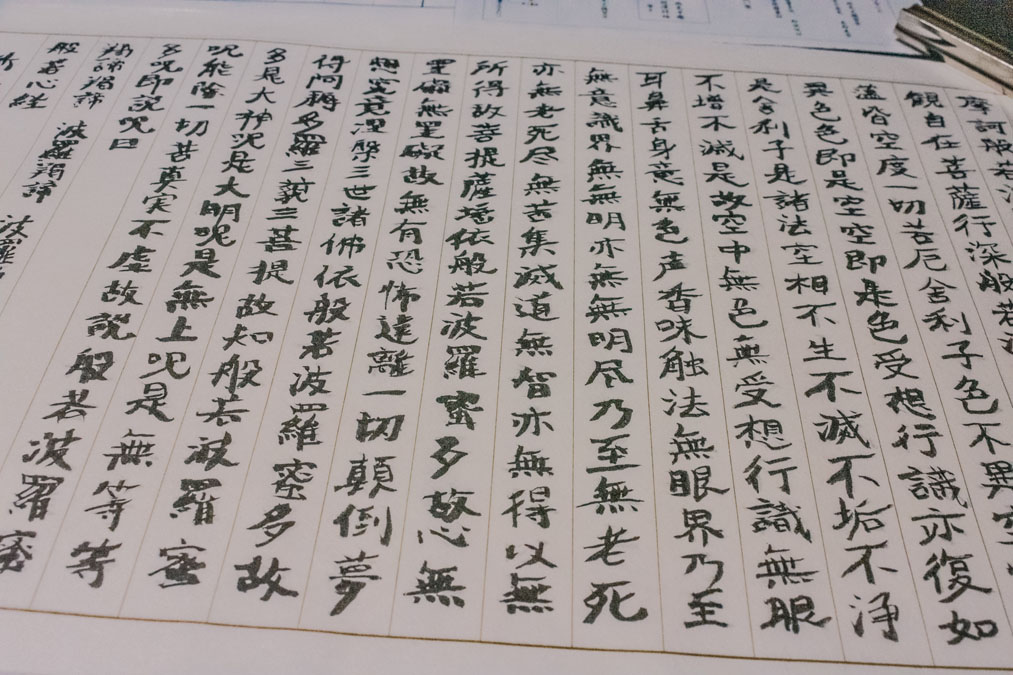 摩訶般若
観自在菩薩行深般若
蘊皆空度一切苦厄舍利子色不異空
異色色即是空空即是色受想行識亦復如
是舍利子是諸法空相不生不滅不垢不浄
不増不滅是故空中無色無受想行識無眼
耳鼻舌身意無色声香味触法無眼界乃至
無意識界無無明亦無無明尽乃至無老死
亦無老死尽無苦集滅道無智亦無得以無
所得故菩提薩埵依般若波羅蜜多故心無
罣礙無罣礙故無有恐怖遠離一切顛倒夢
想究竟涅槃三世諸佛依般若波羅蜜多故
得阿耨多羅三藐三菩提故知般若波羅蜜
多是大神呪是大明呪是無上呪是無等等
呪能除一切苦真実不虚故説般若波羅蜜
多呪即説呪曰
羯諦羯諦 波羅羯諦 波羅
般若心経